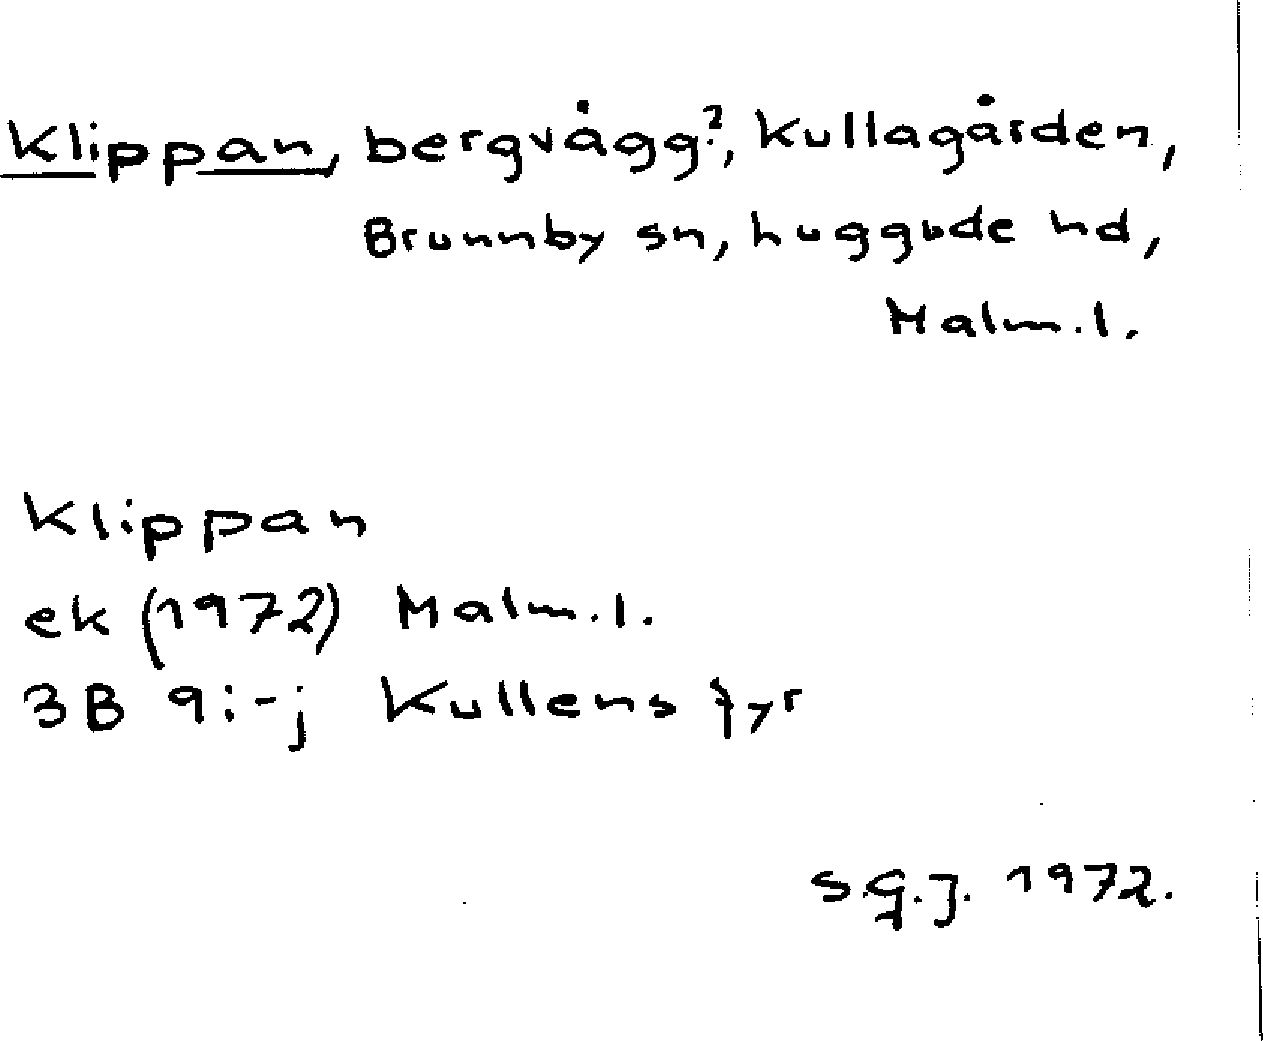 Klippan, bergvågg?, Kullagården,
Brunnby sn, huggude hd,
Malm.l.
Klippan
ek (1972) Malm.l.
3B 9i-j Kullens fyr
S.G.J. 1972.